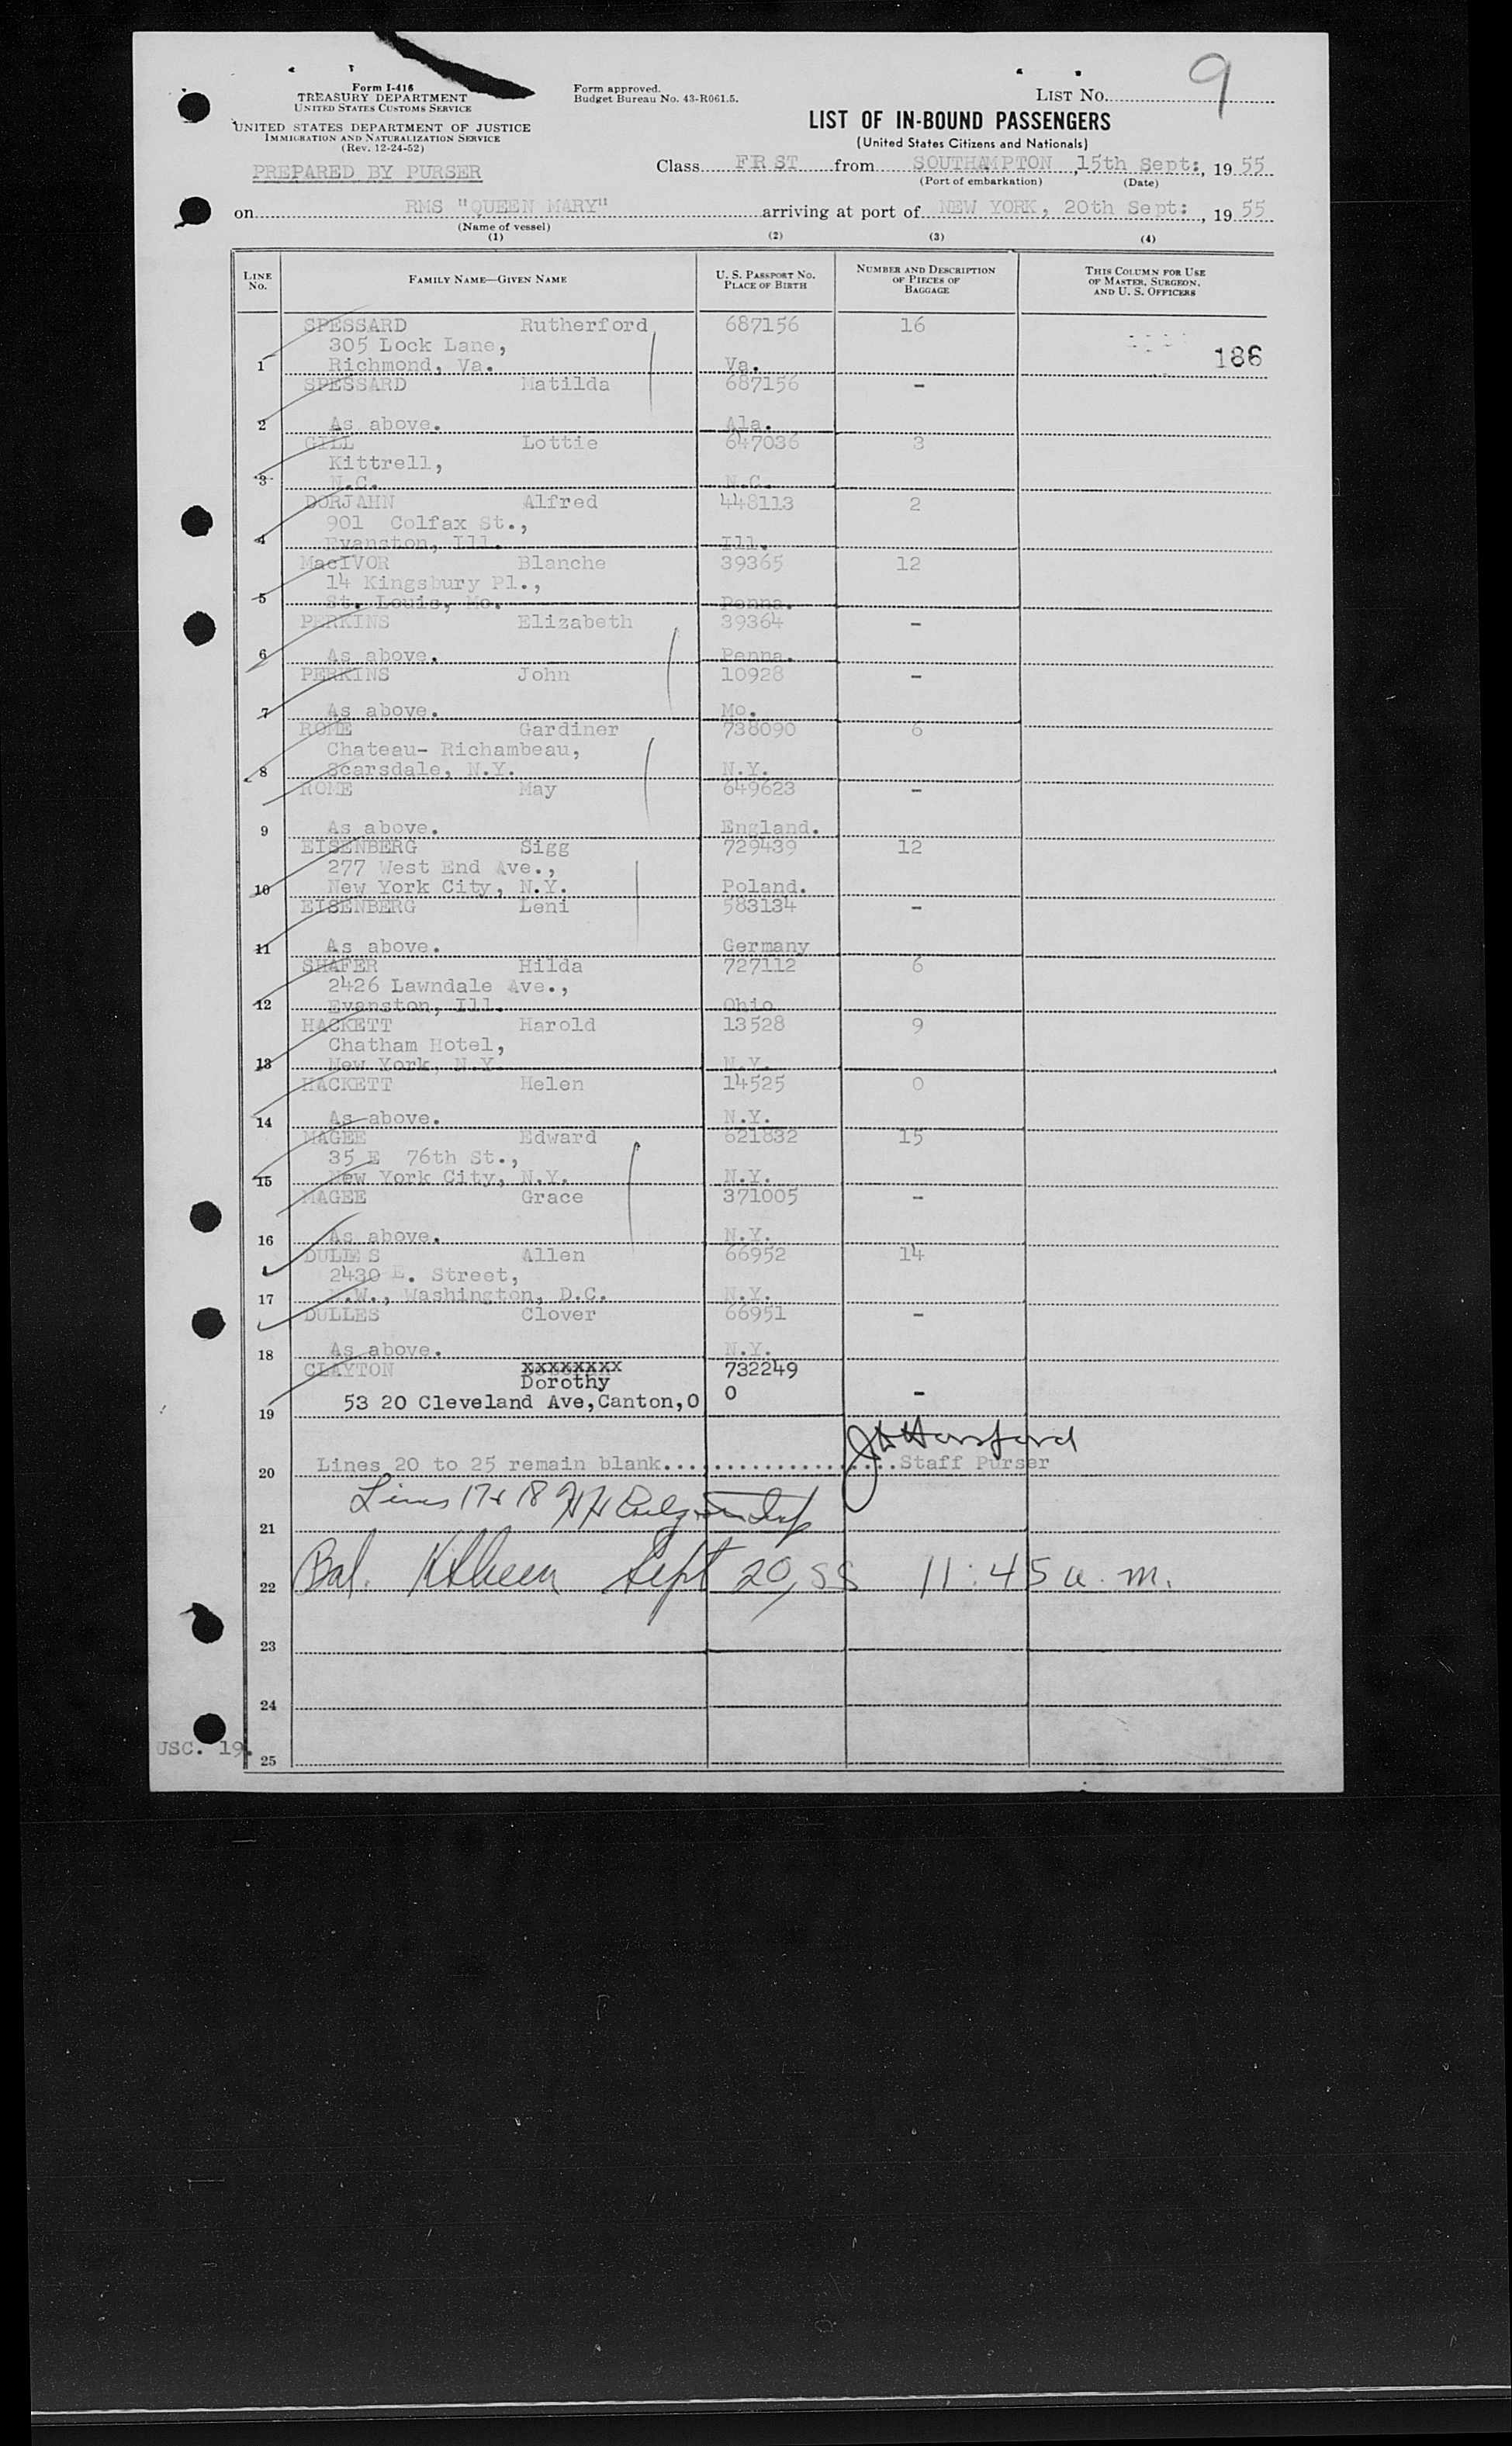 9
Form I-418
TREASURY DEPARTMENT
UNITED STATES CUSTOMS SERVICE
UNITED STATES DEPARTMENT OF JUSTICE
IMMIGRATION AND NATURALIZATION SERVICE
(Rev. 12-24-52)
PREPARED BY PURSER
Form approved.
Budget Bureau No. 43-R061.5.
LIST NO.
LIST OF IN-BOUND PASSENGERS
(United States Citizens and Nationals)
Class FIRST from SOUTHAMPTON, 15th Sept:, 1955
(Port of embarkation) (Date)
on RMS "QUEEN MARY" arriving at port of NEW YORK, 20th Sept:, 1955
(Name of vessel)
(1) (2) (3) (4)
LINE No. FAMILY NAME—GIVEN NAME U. S. PASSPORT NO. PLACE OF BIRTH NUMBER AND DESCRIPTION OF PIECES OF BAGGAGE THIS COLUMN FOR USE OF MASTER, SURGEON, AND U. S. OFFICERS
SPESSARD Rutherford 687156 16
305 Lock Lane,
186
1 Richmond, Va. Va.
SPESSARD Matilda 687156 -
2 As above. Ala.
GILL Lottie 647036 3
Kittrell,
3 N.C. N.C.
DORJAHN Alfred 448113 2
901 Colfax St.,
4 Evanston, Ill. Ill.
MacIVOR Blanche 39365 12
14 Kingsbury Pl.,
5 St. Louis, Mo. Penna.
PERKINS Elizabeth 39364 -
6 As above. Penna.
PERKINS John 10928 -
7 As above. Mo.
ROME Gardiner 738090 6
Chateau- Richambeau,
8 Scarsdale, N.Y. N.Y.
ROME May 649623 -
9 As above. England.
EISENBERG Sigg 729439 12
277 West End Ave.,
10 New York City, N.Y. Poland.
EISENBERG Leni 583134 -
11 As above. Germany
SHAFER Hilda 727112 6
2426 Lawndale Ave.,
12 Evanston, Ill. Ohio
HACKETT Harold 13528 9
Chatham Hotel,
13 New York, N.Y. N.Y.
HACKETT Helen 14525 0
14 As above. N.Y.
MAGEE Edward 621832 15
35 E 76th St.,
15 New York City, N.Y. N.Y.
MAGEE Grace 371005 -
16 As above. N.Y.
DULLES Allen 66952 14
2430 E. Street,
17 N.W., Washington, D.C. N.Y.
DULLES Clover 66951 -
18 As above. N.Y.
CLAYTON xxxxxxxx 732249
Dorothy
53 20 Cleveland Ave,Canton,O O -
19
20 Lines 20 to 25 remain blank. Staff Purser
Lines 17 & 18
21
22 Bal. Sept 20, 55 11:45 a.m.
23
24
USC. 19.
25